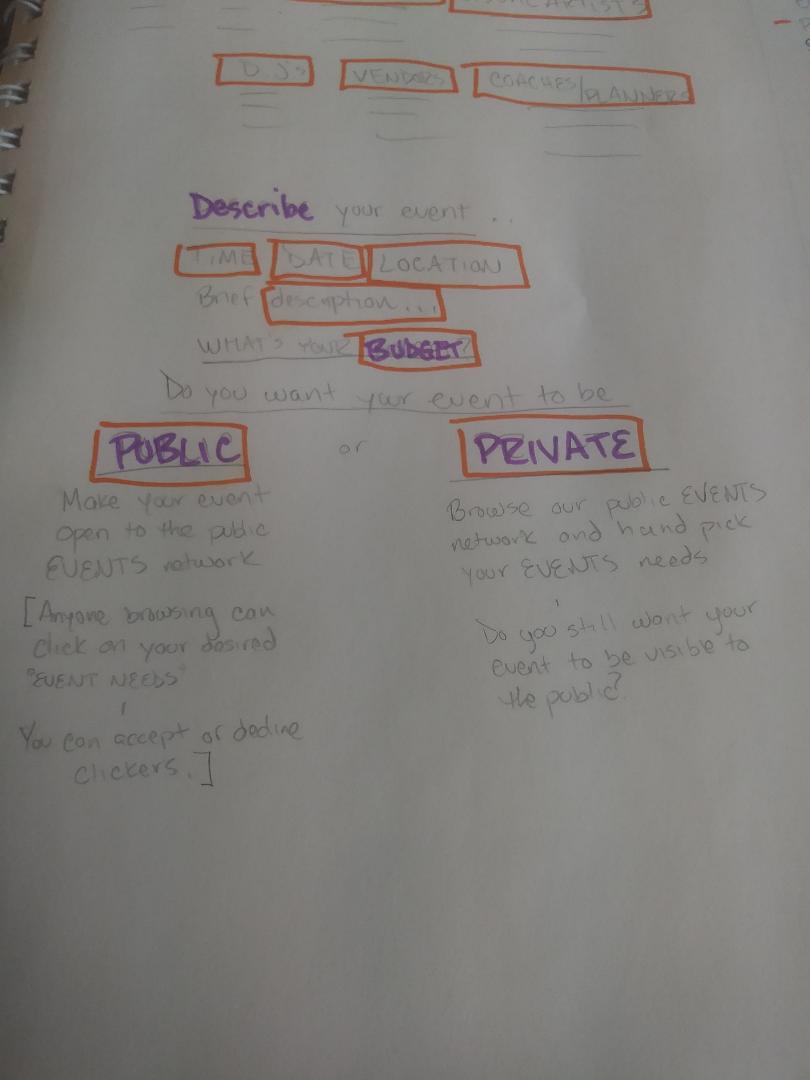 ARTISTS
D.J's VENDORS COACHES/PLANNERS
Describe your event ...
TIME DATE LOCATION
Brief description...
WHAT'S YOUR BUDGET?
Do you want your event to be
PUBLIC or PRIVATE
Make your event
open to the public
EVENTS network
[Anyone browsing can
click on your desired
"EVENT NEEDS"
You can accept or decline
clickers.]
Browse our public EVENTS
network and hand pick
your EVENTS needs
Do you still want your
event to be visible to
the public?